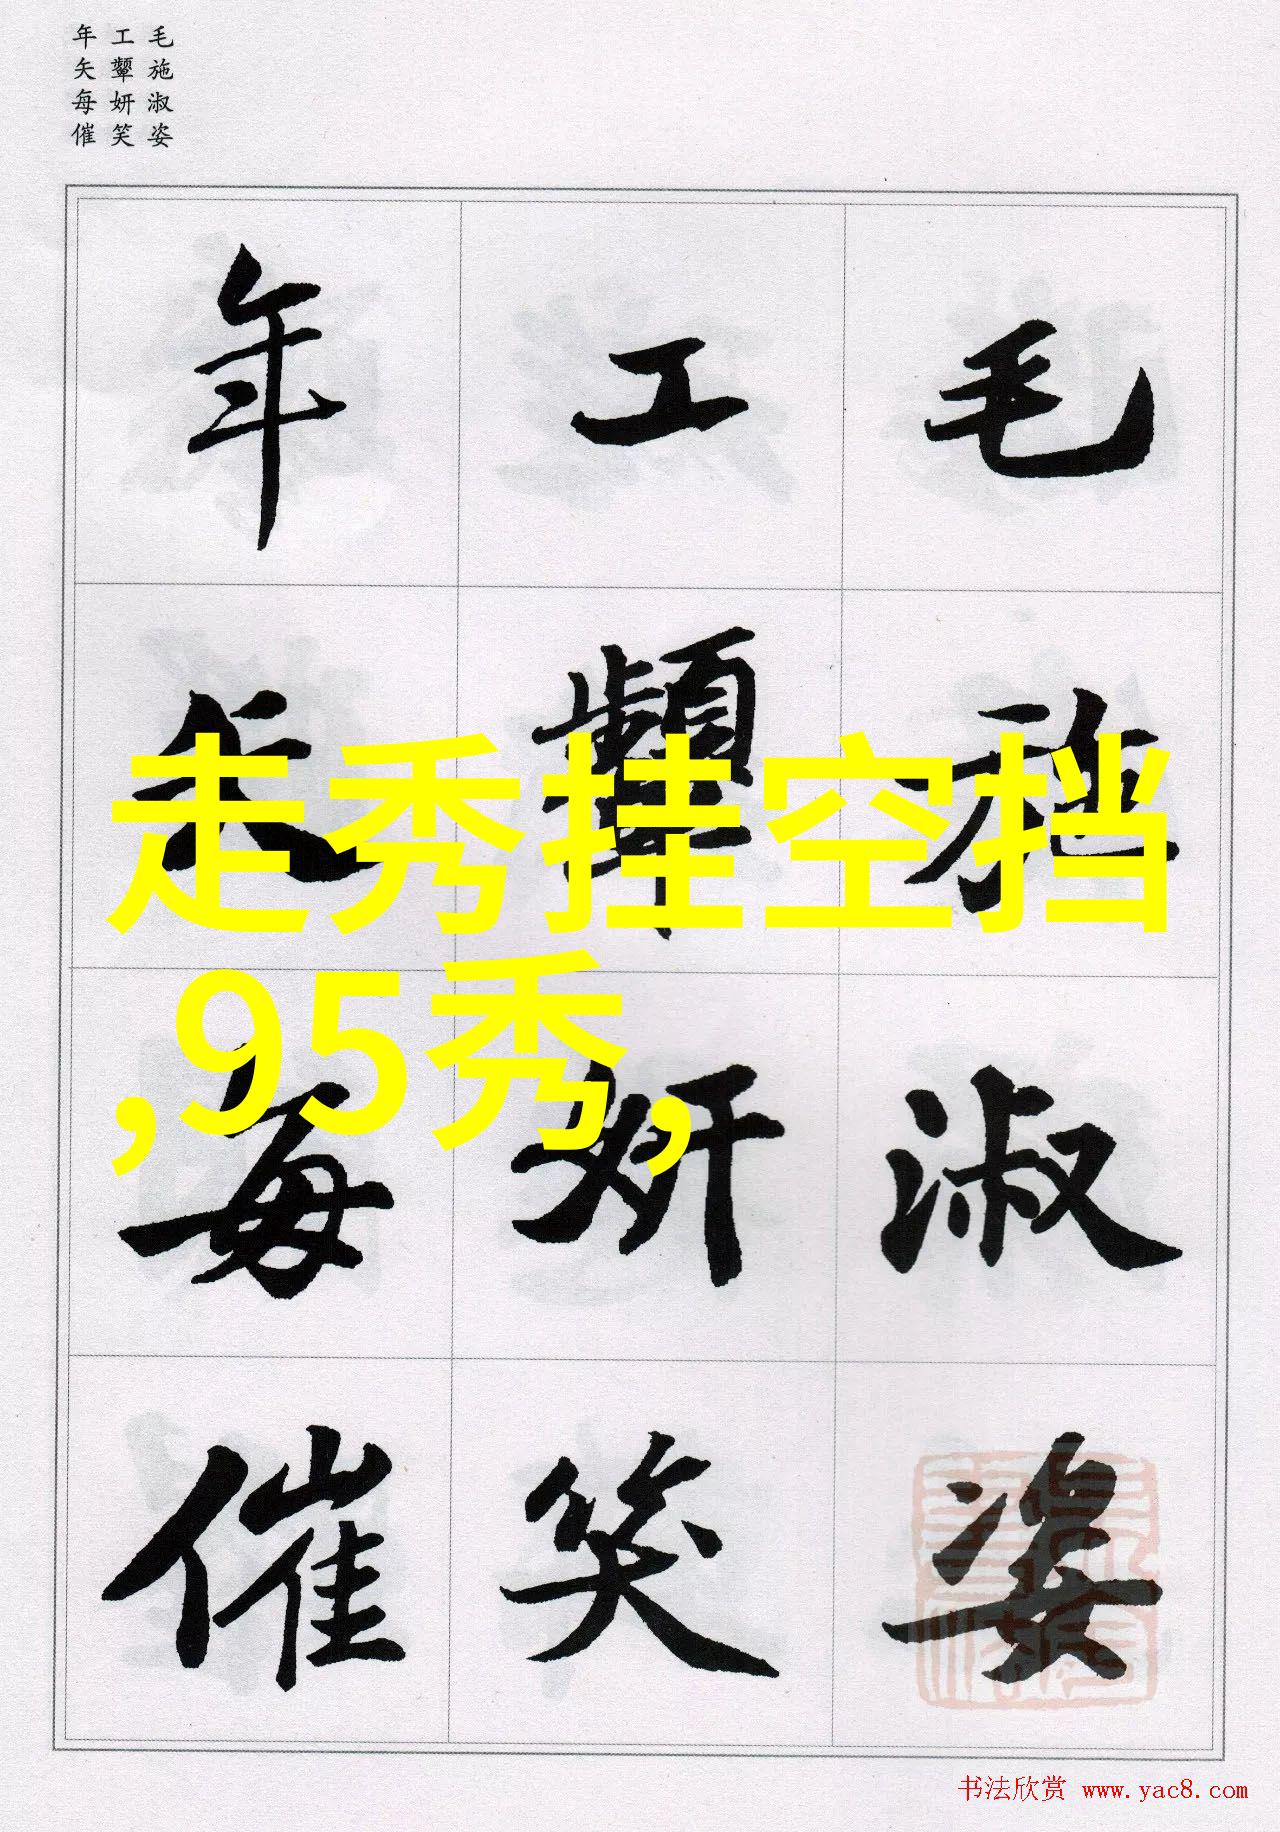 毛施淑姿
工顰妍笑
年矢每催
走秀挂空挡
,95秀,
毛施淑姿
工顰妍笑
年矢每催
书法欣赏 www.yac8.com